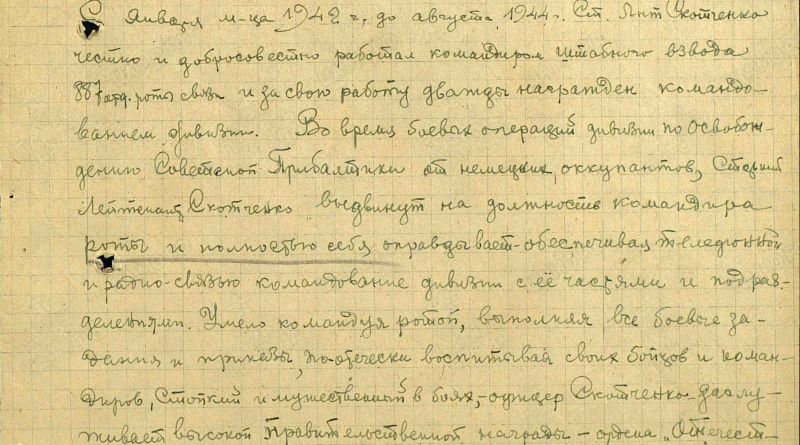 С января м-ца 1942 г. до августа 1944 г. Ст. Л-нт Скотченко
честно и добросовестно работал командиром штабного взвода
887 отд. роты связи и за свою работу дважды награжден командо-
ванием дивизии. Во время боевых операций дивизии по освобож-
дению Советской Прибалтики от немецких оккупантов, Старший
Лейтенант Скотченко выдвинут на должность командира
роты и полностью себя оправдывает - обеспечивая телефонной
и радио-связью командование дивизии с её частями и подраз-
делениями. Умело командуя ротой, выполняя все боевые за-
дания и приказы, по-отечески воспитывая своих бойцов и коман-
диров, Стойкий и мужественный в боях, - офицер Скотченко - заслу-
живает высокой Правительственной награды - ордена "Отечест-